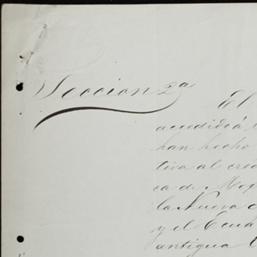 Seccion 2ª
El
accedido á
han hecho
tiva al cred
ca de Mex
la Nueva
y el Ecua
antigua